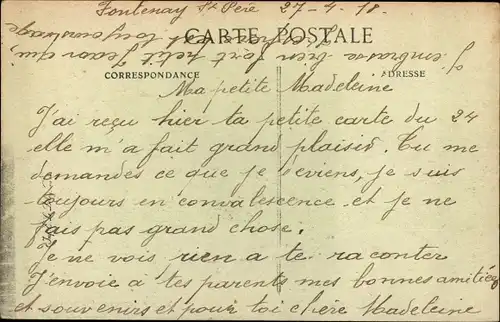 Fontenay St Père 27-4-18.
CARTE POSTALE
CORRESPONDANCE
ADRESSE
Ma petite Madeleine
J'ai reçu hier ta petite carte du 24
elle m'a fait grand plaisir. Tu me
demandes ce que je deviens, je suis
toujours en convalescence et je ne
fais pas grand chose.
Je ne vois rien a te raconter
J'envoie à tes parents mes bonnes amitiées
et souvenirs et pour toi chère Madeleine
J'embrasse bien fort petit Jean qui
est toujours